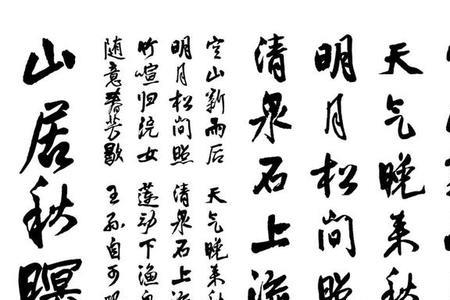 天气晚来秋
明月松间照
清泉石上流
空山新雨后 天气晚来秋
明月松间照 清泉石上流
竹喧归浣女 莲动下渔舟
随意春芳歇 王孙自可
山居秋暝